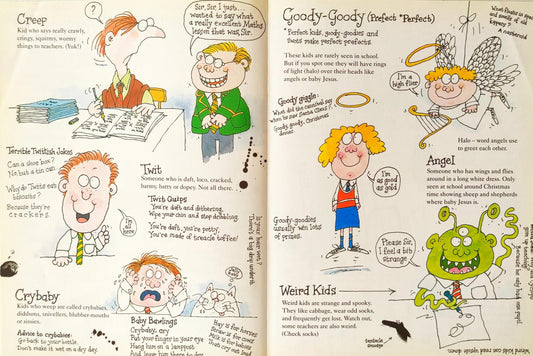 Creep
Kid who says really crawly,
cringy, squirmy, wormy
things to teachers. (Yuk!)
?
Sir, Sir I just...
wanted to say what
a really excellent Maths
lesson that was, Sir.
Terrible Twittish Jokes
Can a shoe box?
No. but a tin can.
Why do Twits eat
biscuits?
Because they're
crackers.
I'm
all
here
Twit
Someone who is daft, loco, cracked,
barmy, batty or dopey. Not all there.
Twit Quips
You're daft and dithering,
Wipe your chin and stop dribbling.
You're daft, you're potty,
You're made of treacle toffee!
Crybaby
Kids who weep are called crybabies,
diddums, snivellers, blubber-mouths
or sissies.
Advice to crybabies:
Go back to your bottle.
Don't make it wet on a dry day.
Baby Bawlings
Crybaby, cry
Put your finger in your eye
Hang him on a lamppost
And leave him there to dry
Hay is for horses
Straw is for cows
Milk is for babies
Goody-Goody (Prefect *Perfect)
*Perfect kids, goody-goodies and
swots make perfect prefects.
These kids are rarely seen in school.
But if you spot one they will have rings
of light (halo) over their heads like
angels or baby Jesus.
Goody giggle:
What did the cannibal say
when he saw Santa Claus?
Goody, goody, Christmas
dinner
I'm
as
good
as
gold
Goody-goodies
usually win lots
of prizes.
What floats in space
and smells of old
kippers?
I'm a
high flier!
Halo – word angels use
to greet each other.
Angel
Someone who has wings and flies
around in a long white dress. Only
seen at school around Christmas
time showing sheep and shepherds
where baby Jesus is.
Please Sir,
I feel a bit
strange
Weird Kids
Weird kids are strange and spooky.
They like cabbage, wear odd socks,
and frequently get lost. Watch out,
some teachers are also weird.
(Check socks)
Weird kids can read upside down